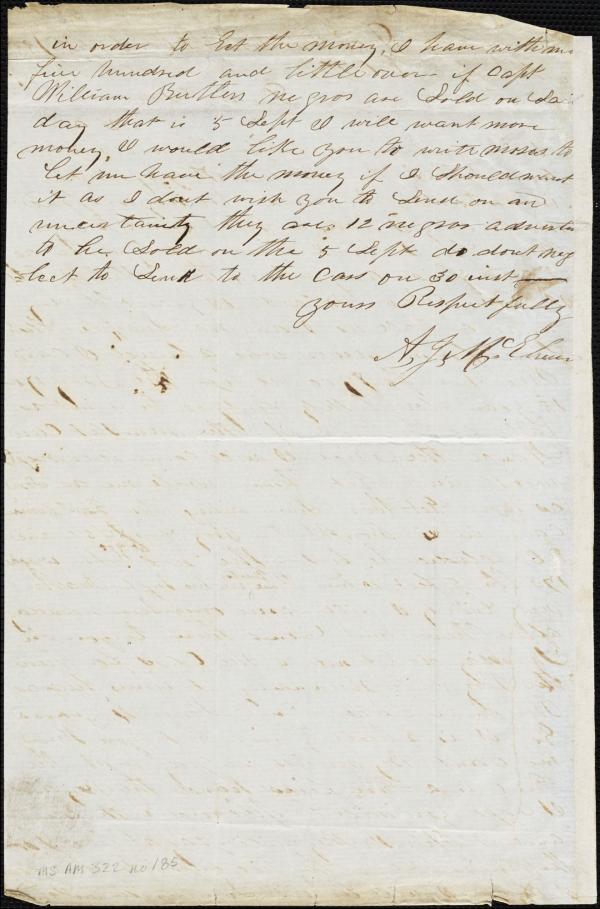 in order to Get the money, I have with me
five hundred and little over if Capt
William Butlers negros are Sold on Sai
day that is 5 Sept I will want more
money, I would like you to write moses to
let me have the money if I Should want
it as I dont wish you to Send on an
uncertainty they are 12 negros advertis
to be Sold on the 5 Sept do dont neg
lect to Send to the Cars on 30 inst
yours Respectfully
A, J, McElveen
MS AM 322 no 185